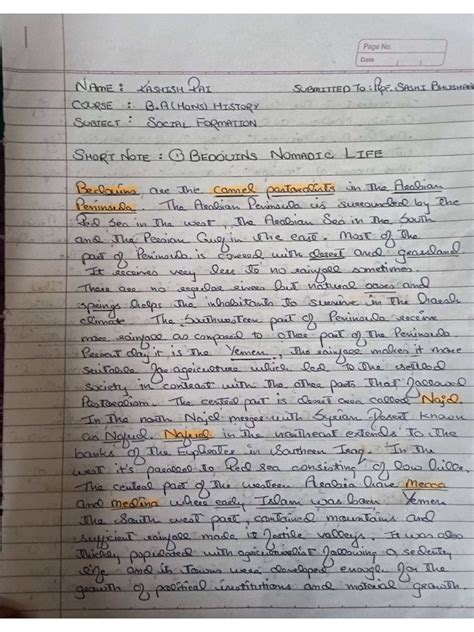 Page No.
Date
NAME : KASHISH RAI SUBMITTED TO : Prof. SASHI BHUSHAN
COURSE : B.A (HONS) HISTORY
SUBJECT : SOCIAL FORMATION
SHORT NOTE : ① BEDOUINS NOMADIC LIFE
Bedouins are the camel pastoralists in the Arabian
Peninsula. The Arabian Peninsula is surrounded by the
Red Sea in the west, the Arabian Sea in the South
and the Persian Gulf in the east. Most of the
part of Peninsula is covered with desert and grassland
It receives very less to no rainfall sometimes.
There are no regular rivers but natural oases and
springs helps the inhabitants to survive in the harsh
climate. The Southwestern part of Peninsula receive
more rainfall as compared to other part of the Peninsula
Present day it is the Yemen. The rainfall makes it more
suitable for agriculture which led to the settled
society in contrast with the other parts that followed
Pastoralism. The central part is desert area called Najd.
In the north Najd merges with Syrian Desert known
as Nafud. Nafud in the northeast extends to the
banks of the Euphrates in Southern Iraq. In the
west it's parallel to Red sea consisting of low hills.
The central part of the western Arabia have Mecca
and medina where early Islam was born. Yemen
the South west part, contained mountains and
sufficient rainfall made it fertile valleys. It was also
thickly populated with agriculturalist following a
life and its towns were developed enough for the
growth of political institutions and material growth.